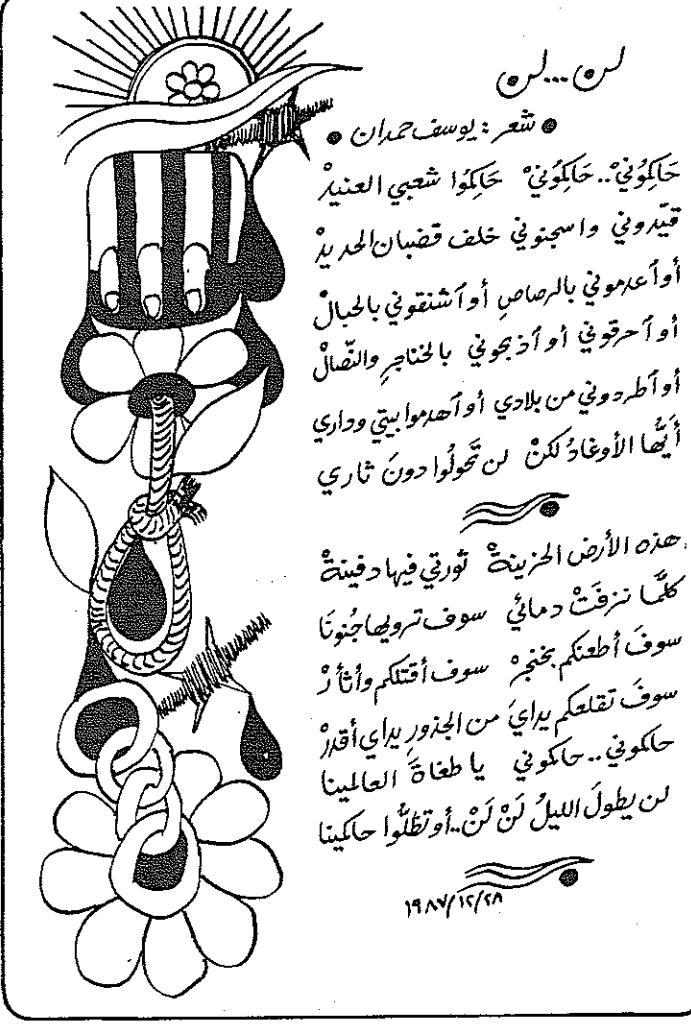 لن...لن
● شعر : يوسف حمدان ●
حَاكِمُونيْ.. حَاكِمُونيْ حَاكِمُوا شعبي العنيدْ
قيّدوني واسجنوني خلف قضبان الحديدْ
أو آعدموني بالرصاصِ أو آشنقوني بالحبالْ
أو آحرقوني أو آذبحوني بالخناجرِ والنّصالْ
أو آطردوني من بلادي أو آهدموا بيتي وداري
أيُّها الأوغادُ لكنْ لن تَحولُوا دونَ ثاري
هذه الأرض الحزينةْ ثورتي فيها دفينةْ
كلَّما نزفَتْ دمائي سوف ترويها جُنونَا
سوفَ أطعنكم بخنجرْ سوف أقتلكم وأثأرْ
سوفَ تقلعكم يدايَ من الجذورِ يداي أقدرْ
حاكموني.. حاكموني يا طغاةَ العالمينا
لن يطولَ الليلُ لَنْ لَنْ.. أو تظلُّوا حاكمينا
١٩٨٧/١٢/٢٨